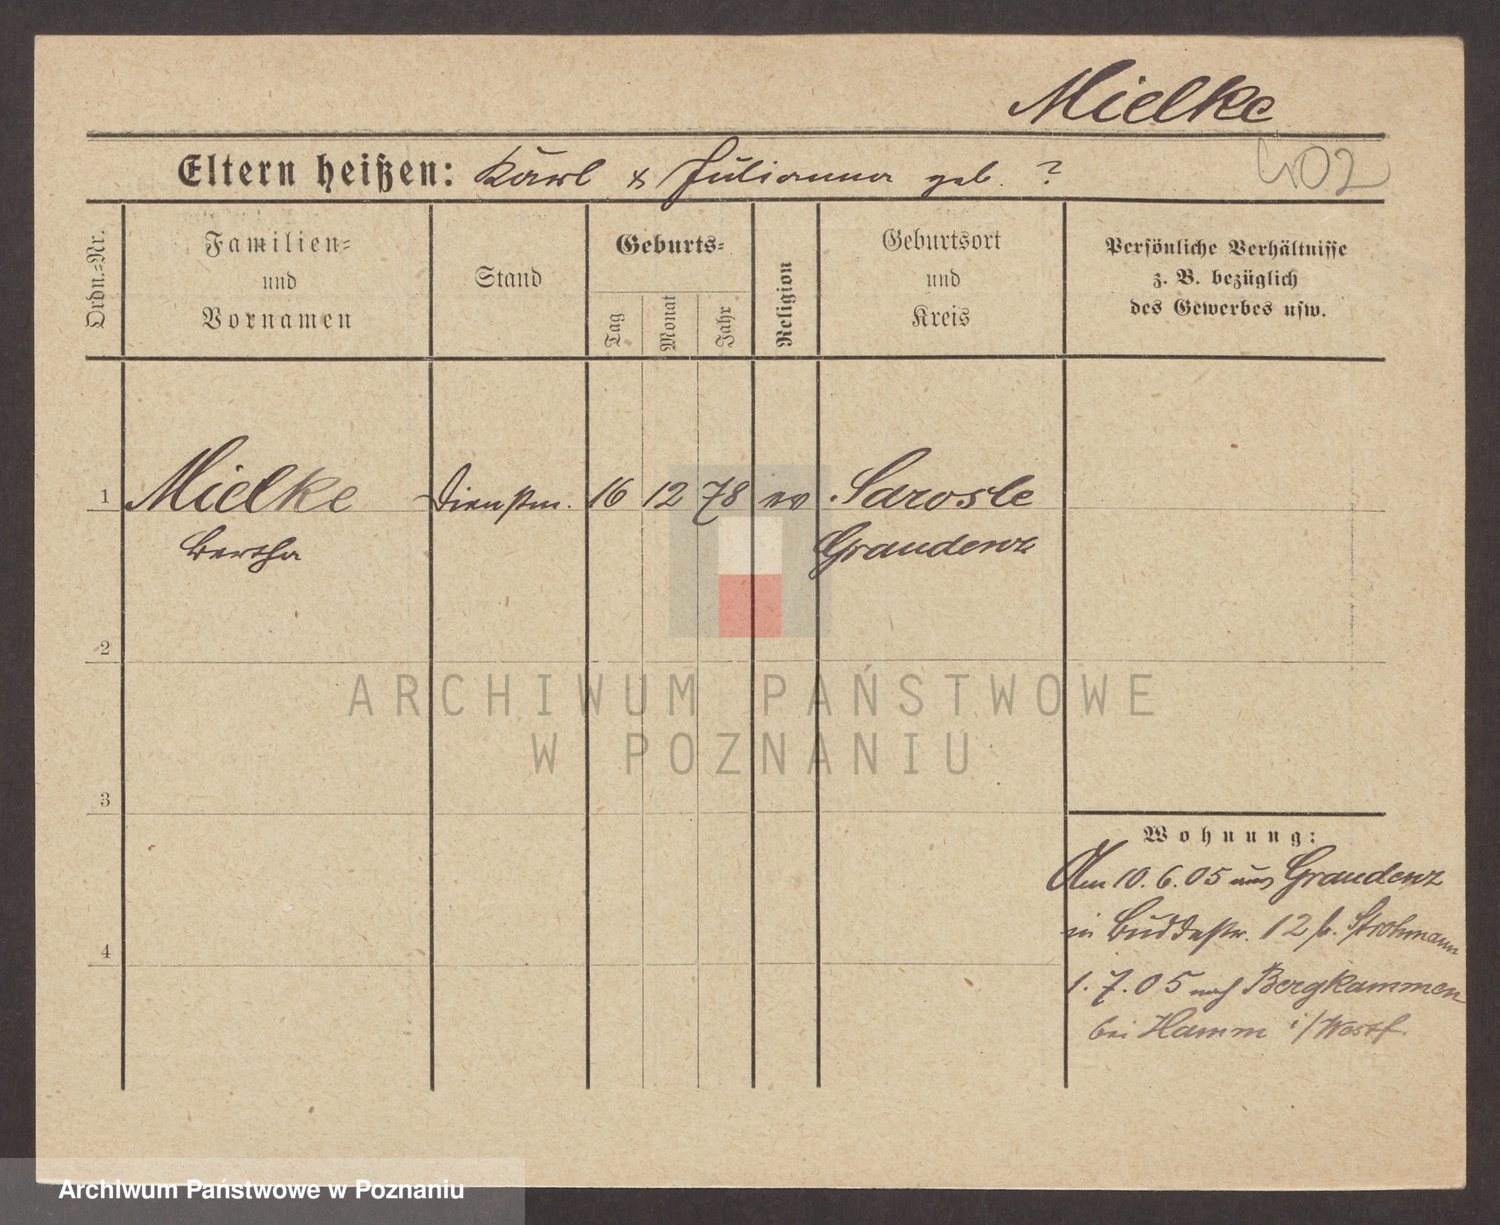 Mielke
Eltern heißen: Karl & Julianna geb. ?
402
Ordn.=Nr.
Familien=
und
Vornamen
Stand
Geburts=
Tag
Monat
Jahr
Religion
Geburtsort
und
Kreis
Persönliche Verhältnisse
z. B. bezüglich
des Gewerbes usw.
1 Mielke Dienstm. 16 12 78 ev Sarosle
Bertha Graudenz
2
3
4
Wohnung:
Am 10.6.05 aus Graudenz
in Buddestr. 12 b. Strohmann
1.7.05 nach Bergkammen
bei Hamm i/Westf.
ARCHIWUM PAŃSTWOWE
W POZNANIU
Archiwum Państwowe w Poznaniu